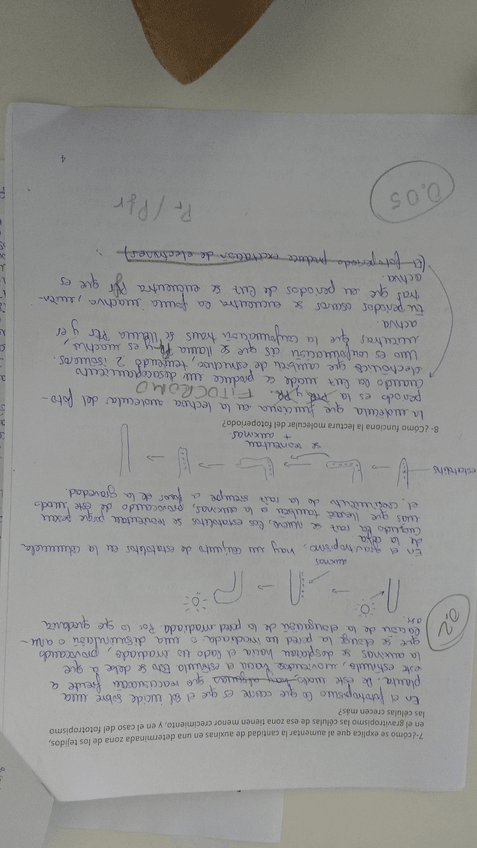 7-¿cómo se explica que al aumentar la cantidad de auxinas en una determinada zona de los tejidos,
en el gravitropismo las células de esa zona tienen menor crecimiento, y en el caso del fototropismo
las células crecen más?
En el fototropismo lo que ocurre es que el sol incide sobre una
planta. De este modo, hay que reaccionan frente a
este estímulo, moviéndose hacia el estímulo. Eso se debe a que
la auxinas se desplazan hacia el lado no irradiado, provocando
que se alargue la pared no irradiada, o una disminución o anu-
lación de la elongación de la pared irradiada. Por lo que quedaría
así:
0.2
auxinas
En el gravitropismo, hay un conjunto de estatolitos en la columela
de la cofia
cuando la raíz se mueve, los estatolitos se movilizan porque pesan
más que llevan también a la auxinas, provocando de este modo
el crecimiento de la raíz siempre a favor de la gravedad.
estatolitos
se concentran
+ auxinas
8- ¿Cómo funciona la lectura molecular del fotoperiodo?
La molécula que funciona en la lectura molecular del foto-
periodo es la FITOCROMO
cuando la luz incide se produce un desacoplamiento
electrónico que cambia de estructura, teniendo 2 isómeros.
Uno es conformación cis que se llama Pr y es inactivo,
mientras que la conformación trans se llama Pfr y es
activa.
En periodos oscuros se encuentra la forma inactiva, mien-
tras que en periodos de luz se encuentra Pfr que es
activa.
(El fotoperiodo produce excitación de electrones)
Pr / Pfr
0.05
4